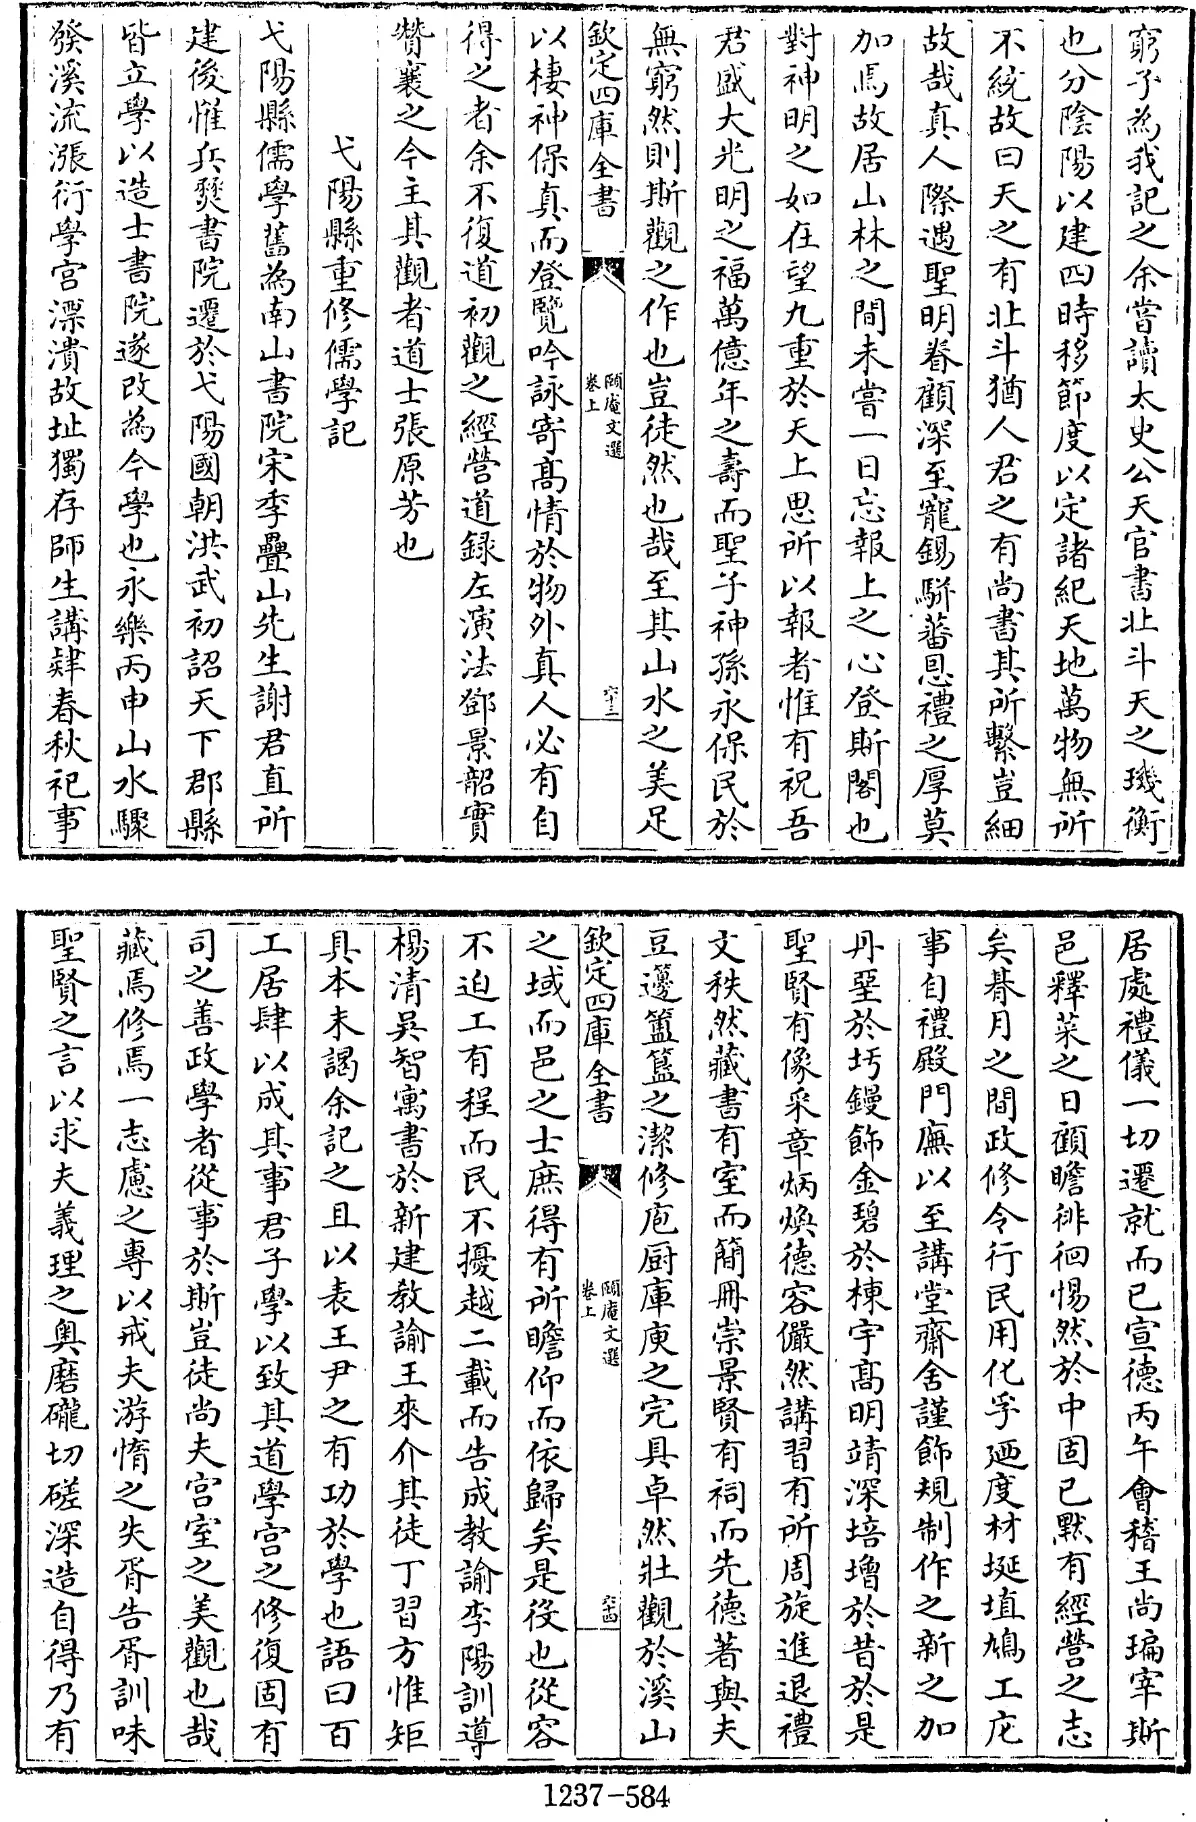 窮子為我記之余嘗讀太史公天官書北斗天之璣衡
也分陰陽以建四時移節度以定諸紀天地萬物無所
不統故曰天之有北斗猶人君之有尚書其所繫豈細
故哉真人際遇聖明眷顧深至寵錫駢蕃恩禮之厚莫
加焉故居山林之間未嘗一日忘報上之心登斯閣也
對神明之如在望九重於天上思所以報者惟有祝吾
君盛大光明之福萬億年之壽而聖子神孫永保民於
無窮然則斯觀之作也豈徒然也哉至其山水之美足
欽定四庫全書
頤庵文選
卷上
六十三
以棲神保真而登覽吟詠寄高情於物外真人必有自
得之者余不復道初觀之經營道録左演法鄧景韶實
贊襄之今主其觀者道士張原芳也
弋陽縣重修儒學記
弋陽縣儒學舊為南山書院宋季疊山先生謝君直所
建後惟兵燹書院遷於弋陽國朝洪武初詔天下郡縣
皆立學以造士書院遂改為今學也永樂丙申山水驟
發溪流漲衍學宫漂潰故址獨存師生講肄春秋祀事
居處禮儀一切遷就而已宣德丙午會稽王尚瑞宰斯
邑釋菜之日顧瞻徘徊惕然於中固已默有經營之志
矣朞月之間政修令行民用化孚廼度材埏埴鳩工庀
事自禮殿門廡以至講堂齋舍謹飾規制作之新之加
丹堊於圬鏝飾金碧於棟宇高明靖深培增於昔於是
聖賢有像采章炳煥德容儼然講習有所周旋進退禮
文秩然藏書有室而簡冊崇景賢有祠而先德著與夫
豆籩簠簋之潔修庖厨庫庾之完具卓然壯觀於溪山
欽定四庫全書
頤庵文選
卷上
六十四
之域而邑之士庶得有所瞻仰而依歸矣是役也從容
不迫工有程而民不擾越二載而告成教諭李陽訓導
楊清吳智寓書於新建教諭王來介其徒丁習方惟矩
具本末謁余記之且以表王尹之有功於學也語曰百
工居肆以成其事君子學以致其道學宫之修復固有
司之善政學者從事於斯豈徒尚夫宫室之美觀也哉
藏焉修焉一志慮之專以戒夫游惰之失胥告胥訓味
聖賢之言以求夫義理之奥磨礲切磋深造自得乃有
1237-584